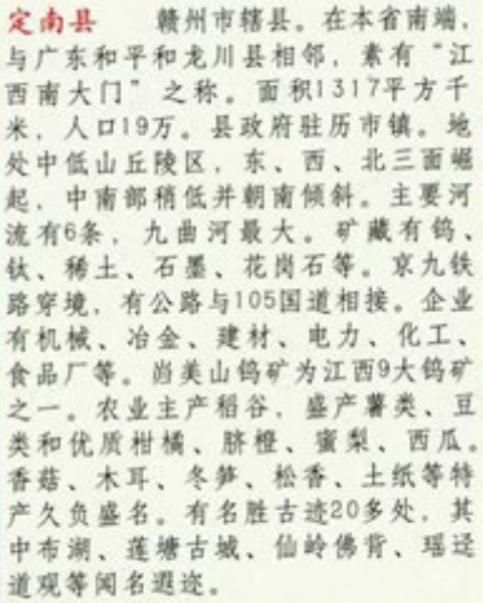 定南县 赣州市辖县。在本省南端，
与广东和平和龙川县相邻，素有“江
西南大门”之称。面积1317平方千
米，人口19万。县政府驻历市镇。地
处中低山丘陵区，东、西、北三面崛
起，中南部稍低并朝南倾斜。主要河
流有6条，九曲河最大。矿藏有钨、
钛、稀土、石墨、花岗石等。京九铁
路穿境，有公路与105国道相接。企业
有机械、冶金、建材、电力、化工、
食品厂等。岿美山钨矿为江西9大钨矿
之一。农业主产稻谷，盛产薯类、豆
类和优质柑橘、脐橙、蜜梨、西瓜。
香菇、木耳、冬笋、松香、土纸等特
产久负盛名。有名胜古迹20多处，其
中布湖、莲塘古城、仙岭佛背、瑶迳
道观等闻名遐迩。